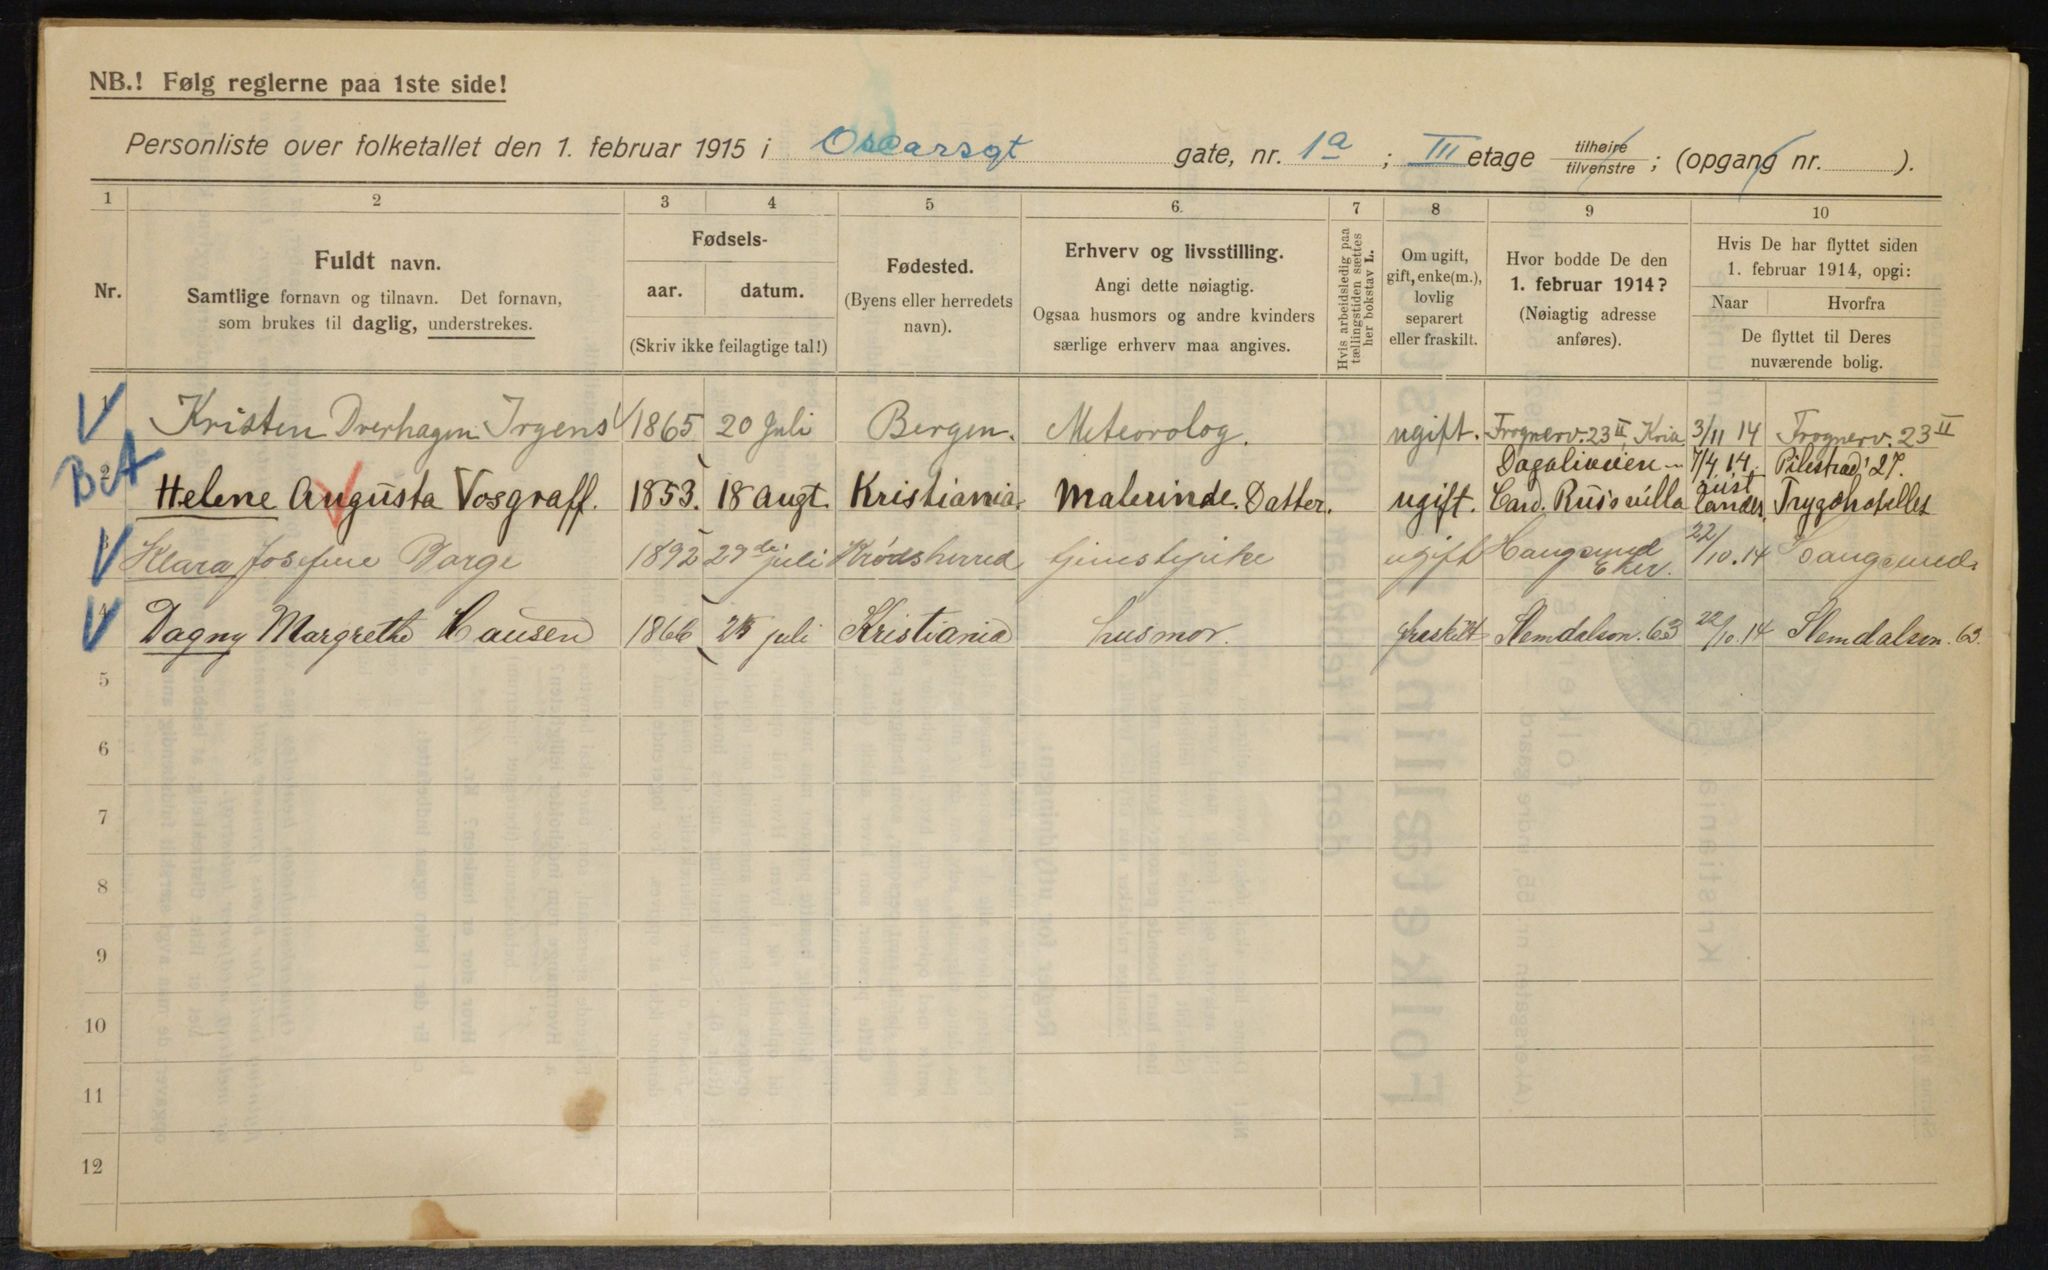 NB.! Følg reglerne paa 1ste side!
Personliste over folketallet den 1. februar 1915 i Oscarsgt gate, nr. 1a ; III etage tilhøire tilvenstre ; (opgang nr. ).
1 2 3 4 5 6. 7 8 9 10
Nr.
Fuldt navn.
Samtlige fornavn og tilnavn. Det fornavn,
som brukes til daglig, understrekes.
Fødsels-
aar. datum.
(Skriv ikke feilagtige tal!)
Fødested.
(Byens eller herredets
navn).
Erhverv og livsstilling.
Angi dette nøiagtig.
Ogsaa husmors og andre kvinders
særlige erhverv maa angives.
Hvis arbeidsledig paa
tællingstiden sættes
her bokstav L.
Om ugift,
gift, enke(m.),
lovlig
separert
eller fraskilt.
Hvor bodde De den
1. februar 1914?
(Nøiagtig adresse
anføres).
Hvis De har flyttet siden
1. februar 1914, opgi:
Naar Hvorfra
De flyttet til Deres
nuværende bolig.
1 Kristen Dverhagen Irgens 1865 20 Juli Bergen. Meteorolog. ugift. Frognerv. 23 II, Kria 3/11 14 Frognerv. 23 II
B.A 2 Helene Augusta Vosgraff. 1853. 18 Augt. Kristiania. Malerinde. Datter. ugift. Dagaliveien Card. Russ villa 7/4 14. Pilestræd 27. Trygshotellet
3 Klara Josefine Borge 1892 29de juli Krødsherred tjenestepike ugift Haugsund Eker. 22/10.14 Haugsund.
4 Dagny Margrethe Hansen 1866 juli Kristiania husmor. fraskilt Slemdalsvn. 63 22/10.14 Slemdalsvn. 63.
5
6
7
8
9
10
11
12